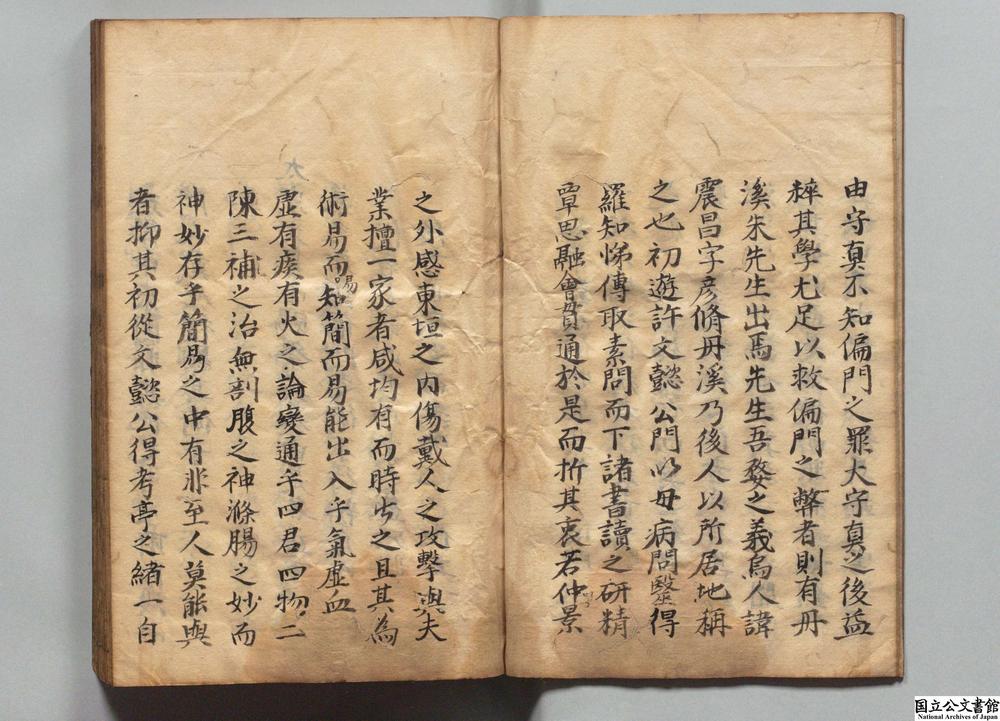 由守真不知偏門之罪大守真之後益
粹其學尤足以救偏門之弊者則有丹
溪朱先生出焉先生吾婺之義烏人諱
震昌字彦脩丹溪乃後人以所居地稱
之也初遊許文懿公門以母病問毉得
羅知悌傳取素問而下諸書讀之研精
覃思融會貫通於是而折其衷若仲景
之外感東垣之内傷戴人之攻擊與夫
業擅一家者咸均有而時出之且其為
術易而易知簡而易能出入乎氣虚血
虚有痰有火之論變通乎四君四物二
陳三補之治無刳腹之神滌腸之妙而
神妙存乎簡易之中有非至人莫能與
者抑其初從文懿公得考亭之緒一自
国立公文書館
National Archives of Japan